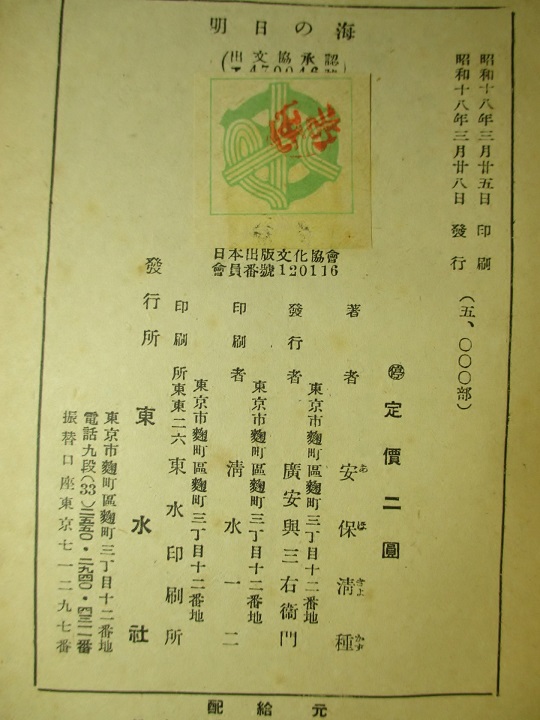 明日の海
(出文協承認
昭和十八年三月廿五日 印刷
昭和十八年三月廿八日 發行 (五、〇〇〇部)
日本出版文化協會
會員番號120116
㊞ 定價二圓
著者 安保清種
あほきよかず
東京市麴町區麴町三丁目十二番地
發行者 廣安興三右衞門
東京市麴町區麴町三丁目十二番地
印刷者 淸水一二
東京市麴町區麴町三丁目十二番地
印刷所 東東二六 東水印刷所
發行所 東水社
東京市麴町區麴町三丁目十二番地
電話九段(33)二五五〇・二九四〇・四三一一番
振替口座東京七一二九七番
配給元